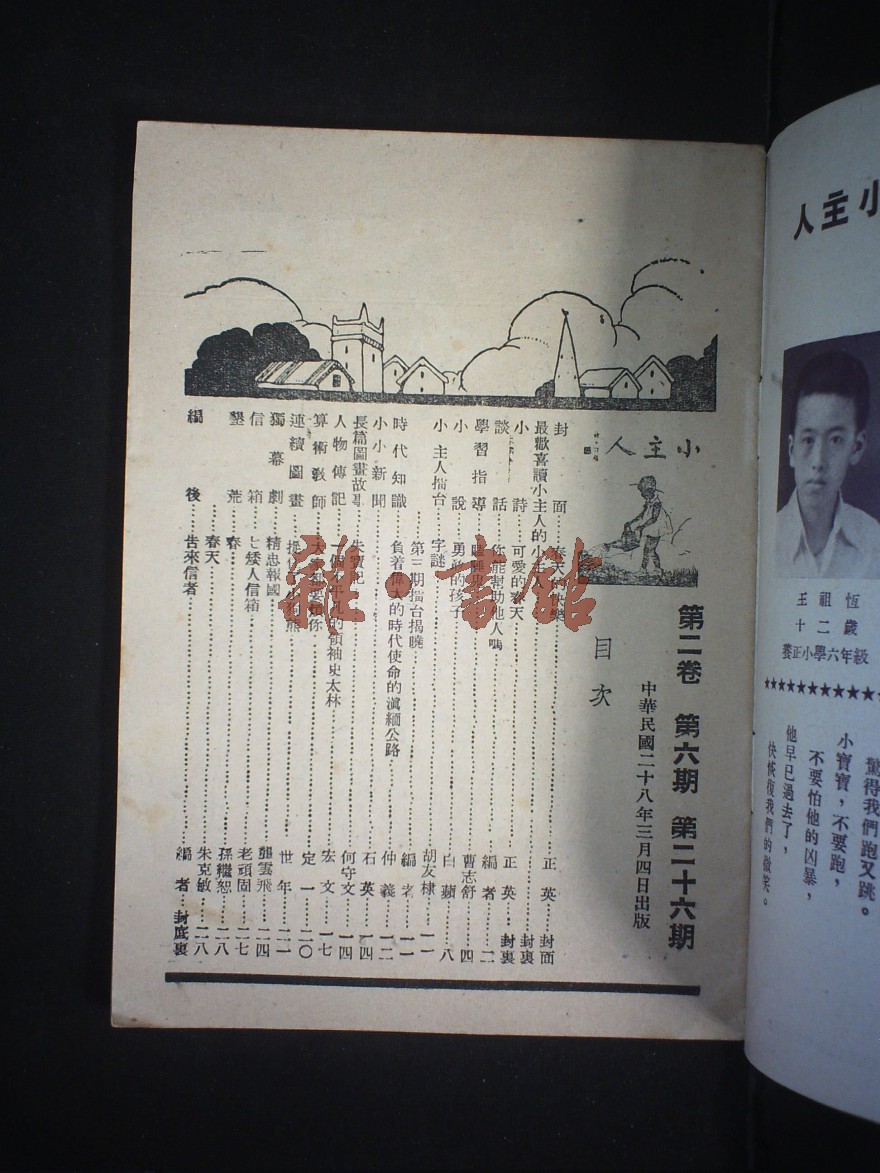 小主人
第二卷 第六期 第二十六期
中華民國二十八年三月四日出版
目次
封面……春天的快樂……正英……封面
最歡喜讀小主人的小主人……封裏
小詩……可愛的春天……正英……封裏
談話……你能幫助他人嗎……編者……二
學習指導……曹志舒……四
小說……勇敢的孩子……白蘋……八
小主人擂台……字謎……胡友棣……一一
第二期擂台揭曉……編者……一一
時代知識……負着偉大的時代使命的滇緬公路……仲義……一二
小小新聞……石英……一四
長篇圖畫故事……朱寶記……何守文……一四
人物傳記……個不平凡的領袖史太林……宏文……一七
算術教師……定一……二〇
連續圖畫……世年……二一
獨幕劇……精忠報國……龔雲飛……二四
信箱……七矮人信箱……老頑固……二七
墾荒……春……孫繼恕……二八
春天……朱克敏……二八
編後……告來信者……編者……封底裏
雜·書館
小主人
王祖恆
十二歲
養正小學六年級
驚得我們跑又跳。
小寶寶,不要跑,
不要怕他的凶暴,
他早已過去了,
快恢復我們的微笑。